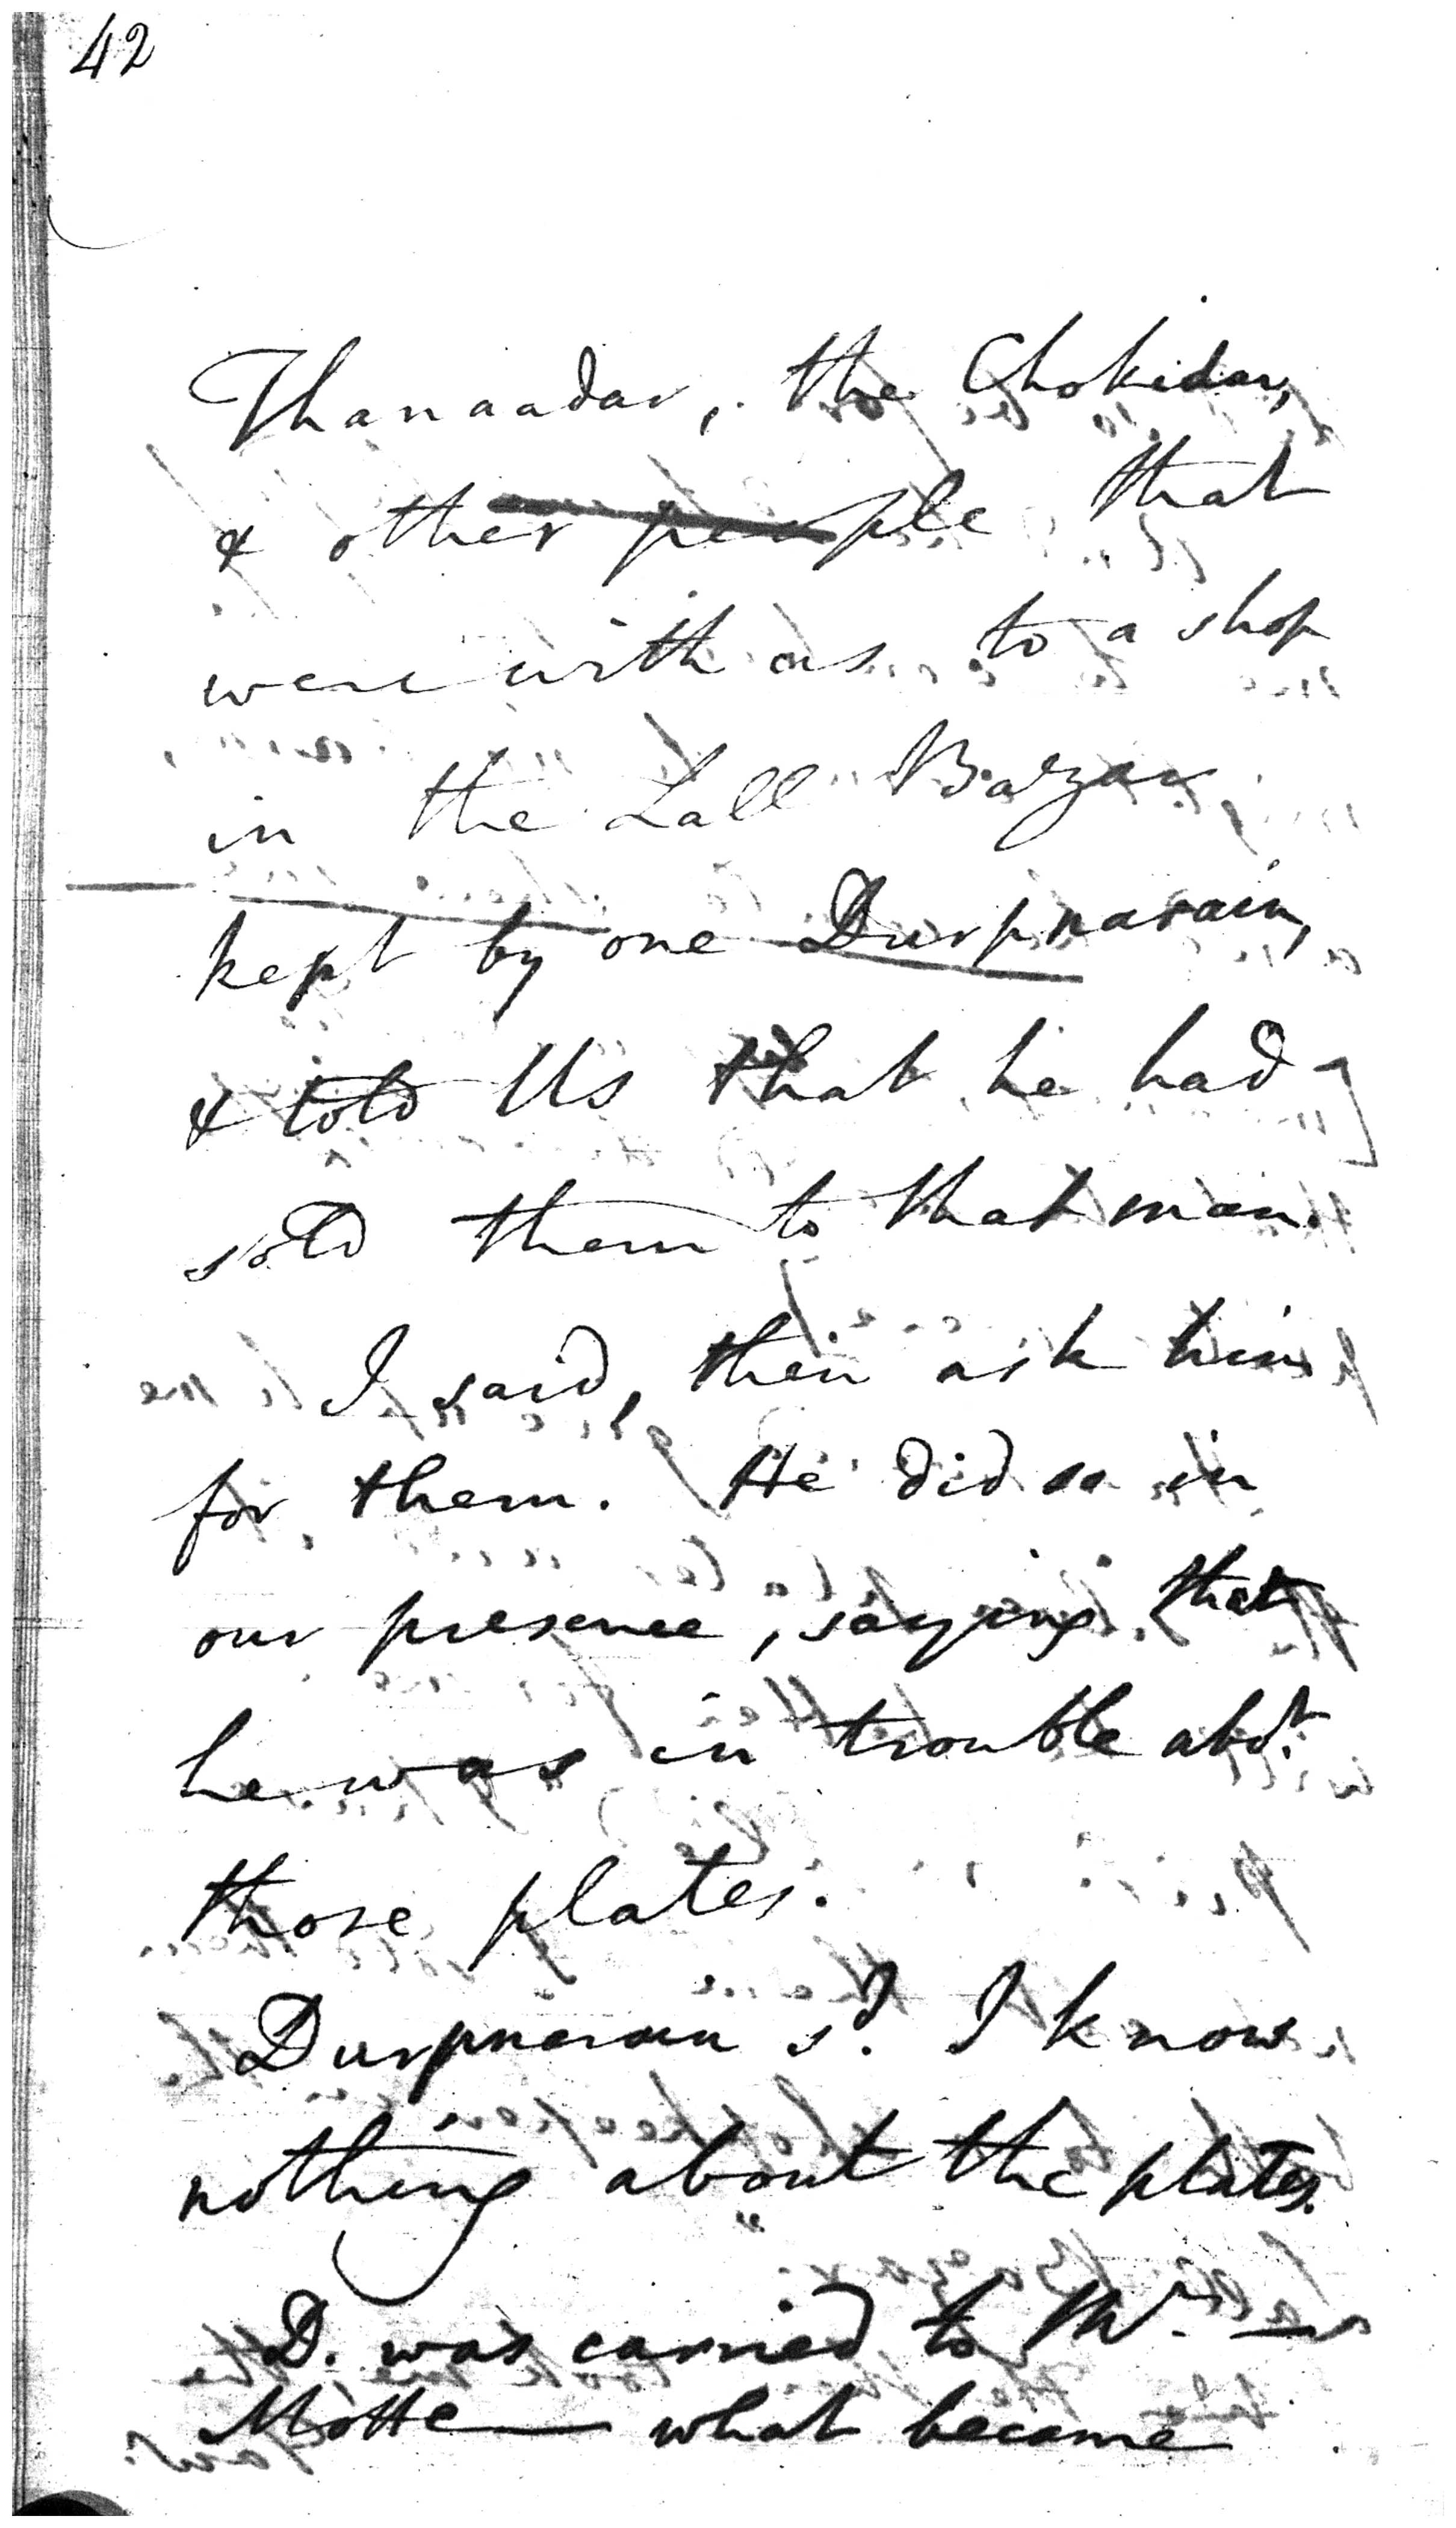 42
Thanaadar, the Chokidar,
& other people that
were with us to a shop
in the Lall Bazar
kept by one Durpnarain,
& told Us that he had
sold them to that man.
I said, then ask him
for them. He did so in
our presence, saying that
he was in trouble abot.
those plates.
Durpnarain sd. I know
nothing about the plates.
D. was carried to Mr.
Motte — what became